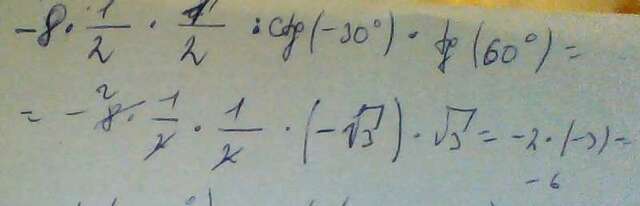 -8 · 1/2 · 1/2 · ctg(-30°) · tg(60°) =
= -8 2 · 1/2 · 1/2 · (-√3) · √3 = -2 · (-3) =
-6